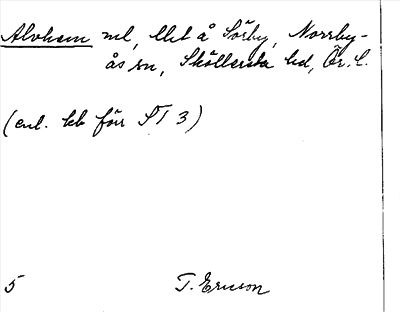 Alvhem ml, lht å Sörby, Norrby-
ås sn, Sköllersta hd, Ör. l.
(enl. kb förr ST 3)
5 T. Ericson